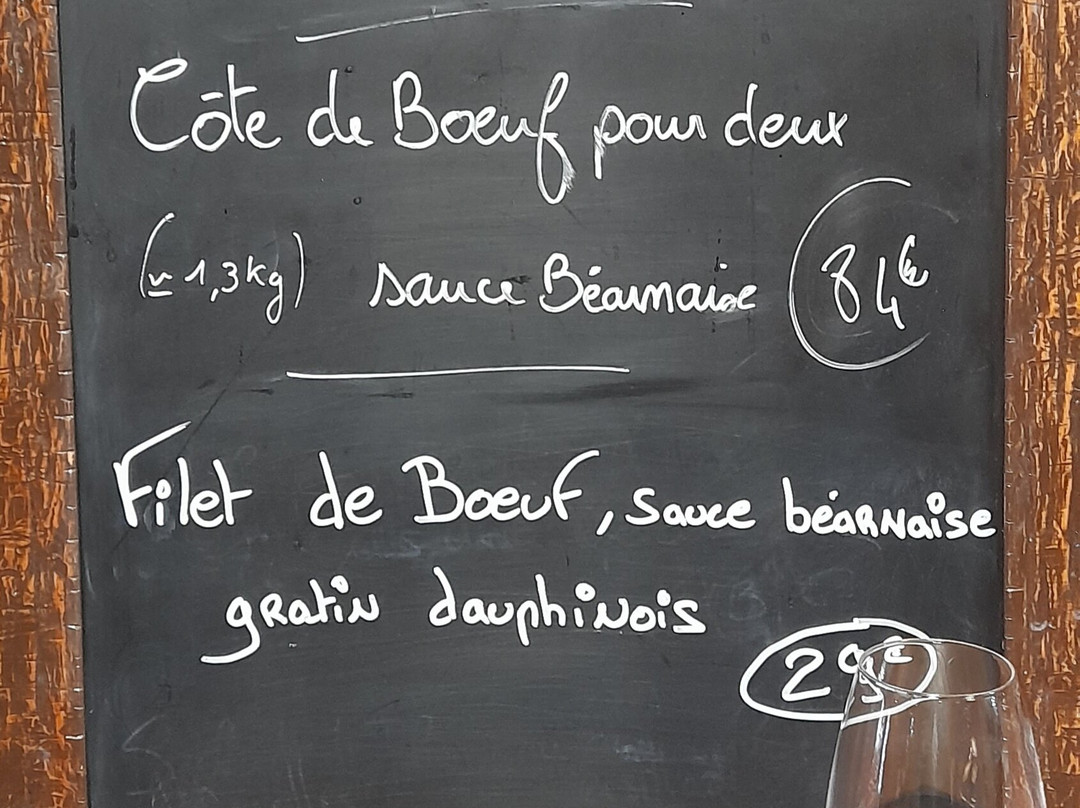 Côte de Boeuf pour deux
(≃ 1,3 kg) sauce Béarnaise 84€
Filet de Boeuf, sauce béarnaise
gratin dauphinois
29€